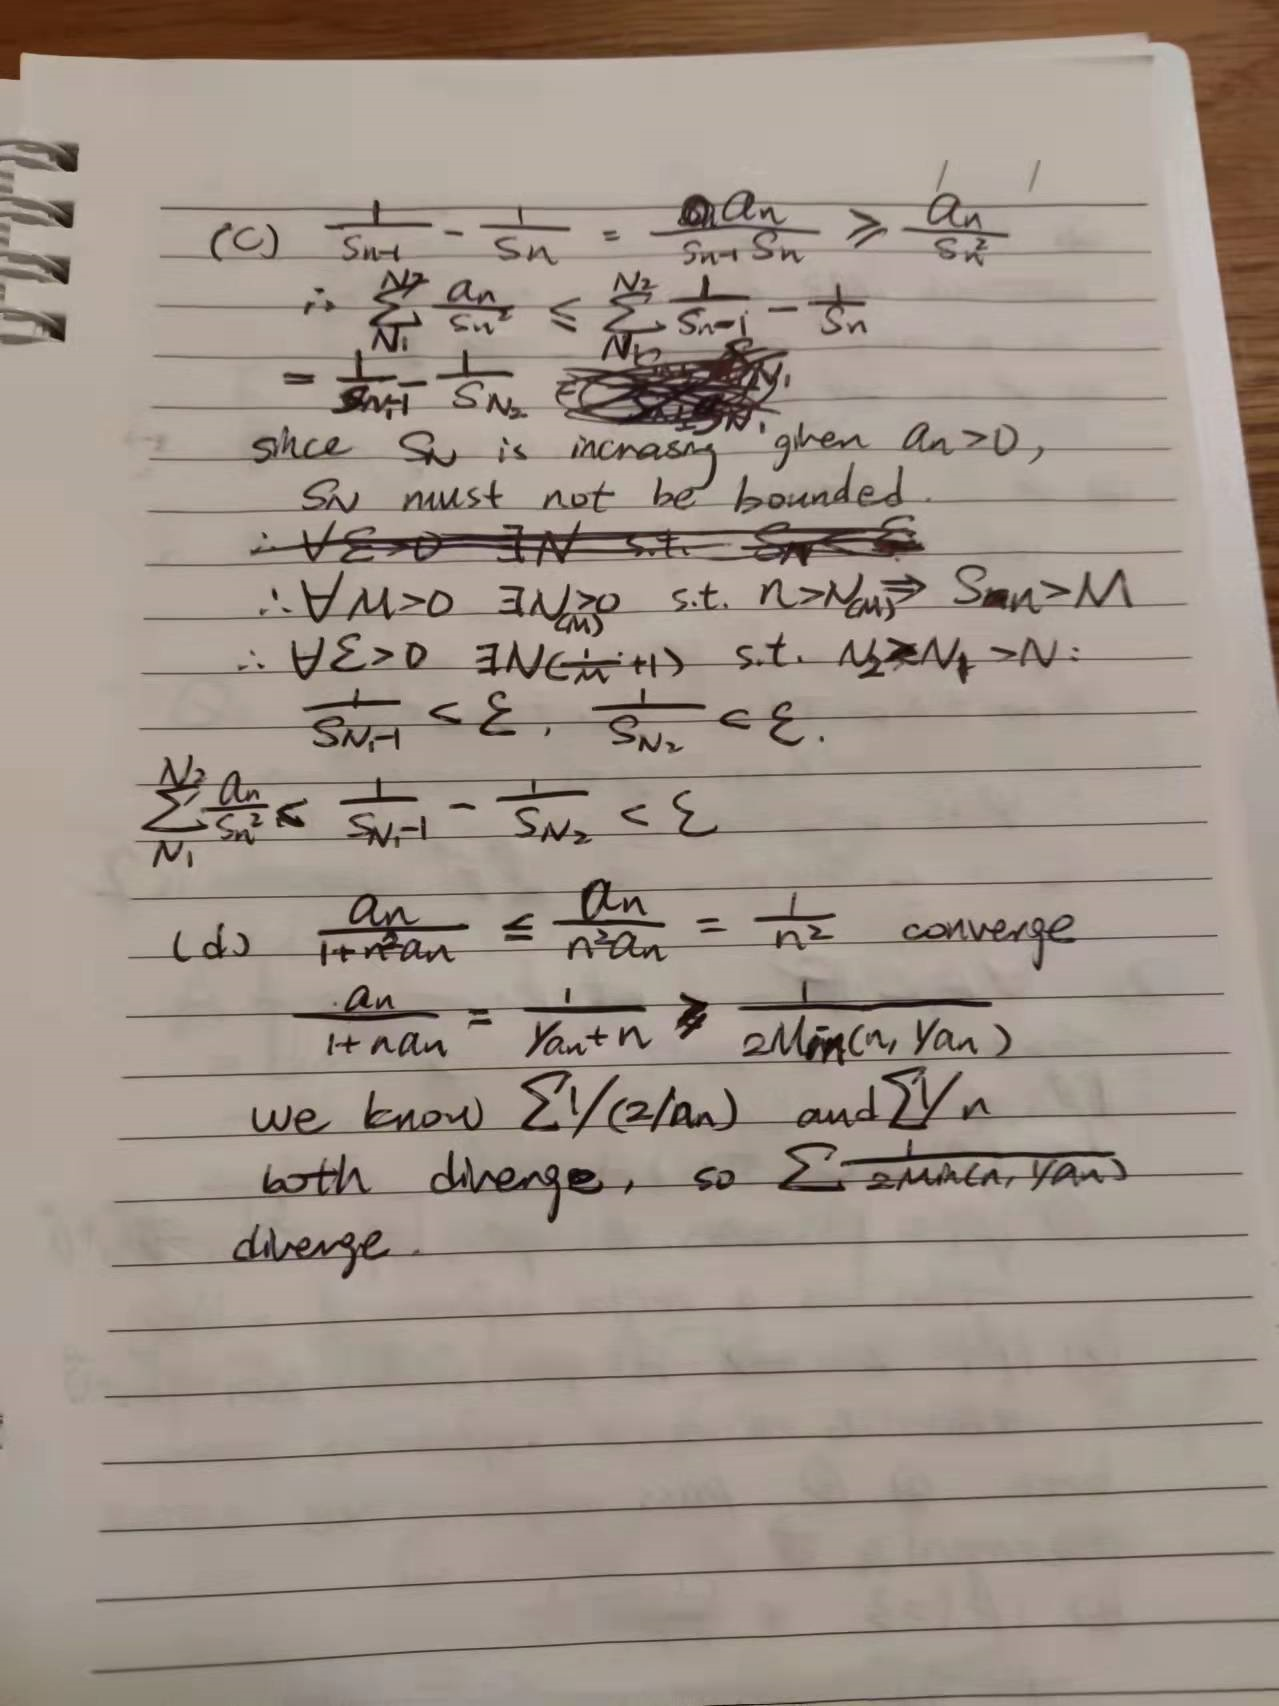 (C) 1/Sn-1 - 1/Sn = an/(Sn-1 Sn) ≥ an/Sn²
∴ Σ_{N1}^{N2} an/Sn² ≤ Σ_{N1}^{N2} 1/Sn-1 - 1/Sn
= 1/SN1-1 - 1/SN2
since SN is incrasng given an>0,
SN must not be bounded.
∴ ∀ε>0 ∃N s.t. SN < ε
∴ ∀M>0 ∃N(M)>0 s.t. n>N(M) ⇒ Sn>M
∴ ∀ε>0 ∃N(1/M+1) s.t. N2≥N1>N:
1/SN1-1 < ε, 1/SN2 < ε.
Σ_{N1}^{N2} an/Sn² ≤ 1/SN1-1 - 1/SN2 < ε
(d) an/(1+n²an) ≤ an/(n²an) = 1/n² converge
an/(1+nan) = 1/(1/an+n) ≥ 1/(2Min(n, 1/an))
we know Σ1/(2/an) and Σ1/n
both diverge, so Σ 1/(2Min(n, 1/an))
diverge.